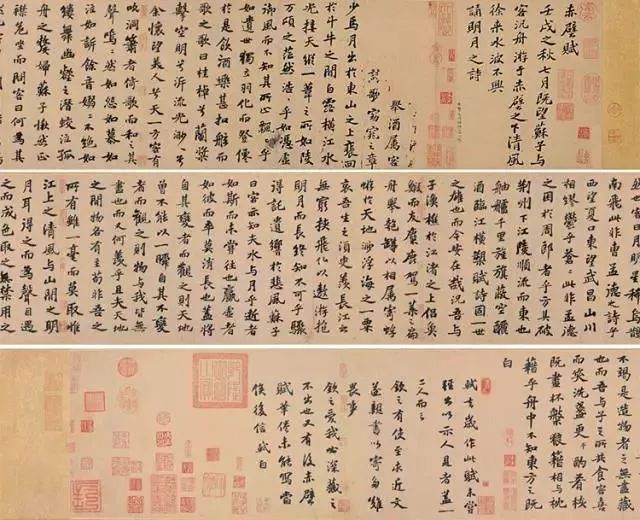 赤壁賦
壬戌之秋七月既望蘇子與
客汎舟游于赤壁之下清風
徐来水波不興
舉酒屬客
誦明月之詩
歌窈窕之章
少焉月出於東山之上裵回
於斗牛之間白露橫江水
光接天縱一葦之所如陵
萬頃之茫然浩〻乎如馮虛
御風而不知其所止飄〻乎
如遺世獨立羽化而登僊
於是飲酒樂甚扣舷而
歌之歌曰桂棹兮蘭槳
擊空明兮泝流光渺〻兮
余懷望美人兮天一方客有
吹洞簫者倚歌而和之其
聲嗚〻然如怨如慕如
泣如訴餘音嫋〻不絕如
縷舞幽壑之潛蛟泣孤
舟之嫠婦蘇子愀然正
襟危坐而問客曰何為其
然也客曰月明星稀烏鵲
南飛此非曹孟德之詩乎
西望夏口東望武昌山川
相繆鬱乎蒼〻此非孟德
之困於周郎者乎方其破
荊州下江陵順流而東也
舳艫千里旌旗蔽空釃
酒臨江橫槊賦詩固一世
之雄也而今安在哉況吾與
子漁樵於江渚之上侶魚
鰕而友麋鹿駕一葉之扁
舟舉匏樽以相屬寄蜉
蝣於天地渺浮海之一粟
哀吾生之須臾羨長江之
無窮挾飛仙以遨游抱
明月而長終知不可乎驟
得託遺響於悲風蘇子
曰客亦知夫水與月乎逝者
如斯而未嘗往也贏虛者
如彼而卒莫消長也蓋將
自其變者而觀之則天地
曾不能以一瞬自其不變
者而觀之則物與我皆無
盡也而又何羨乎且夫天地
之間物各有主苟非吾之
所有雖一毫而莫取惟
江上之清風與山間之明
月耳得之而為聲目遇
之而成色取之無禁用之
不竭是造物者之無盡藏
也而吾與子之所共食客喜
而笑洗盞更酌肴核
既盡杯盤狼籍相與枕
籍乎舟中不知東方之既
白
軾去歲作此賦未嘗
輕出以示人見者蓋一
二人而已
欽之有使至求近文
遂親書以寄多難
畏事
欽之愛我必深藏之
不出也又有後赤壁
賦筆倦未能寫當
俟後信軾白